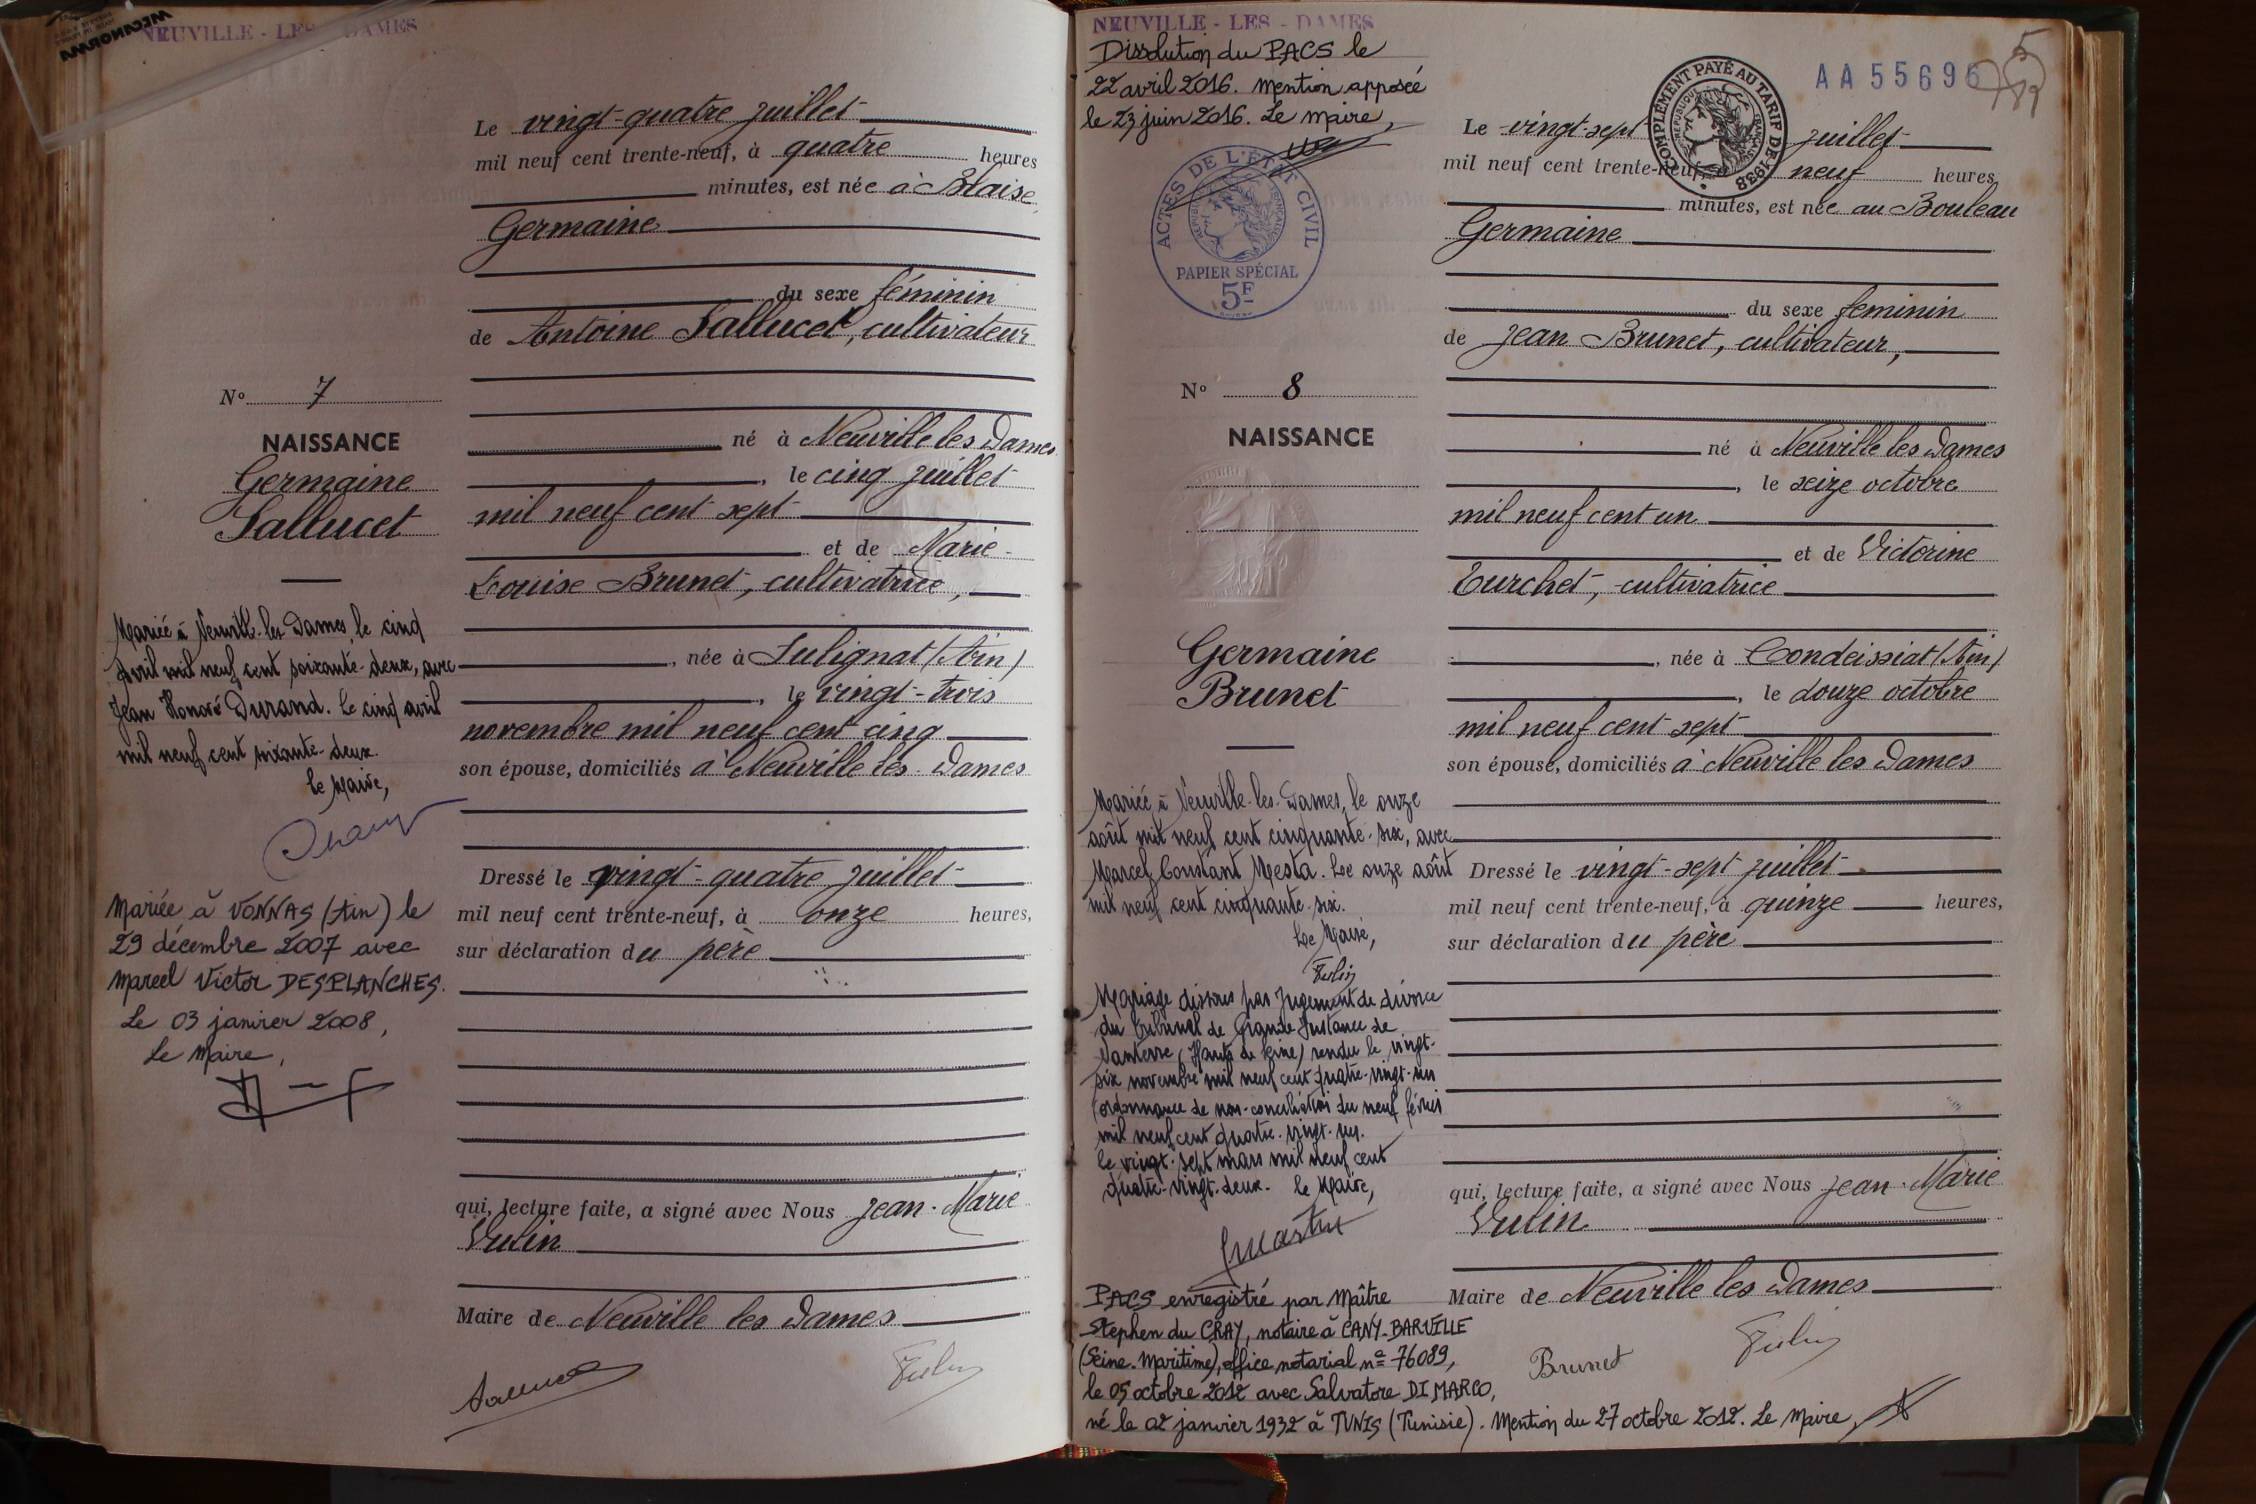 NEUVILLE - LES - DAMES
Le vingt-quatre juillet
mil neuf cent trente-neuf, à quatre heures
minutes, est née à Blaise
Germaine
du sexe féminin
de Antoine Sallucet, cultivateur
né à Neuville les Dames
, le cinq juillet
mil neuf cent sept
et de Marie-
Louise Brunet, cultivatrice,
, née à Sulignat (Ain)
, le vingt-trois
novembre mil neuf cent cinq
son épouse, domiciliés à Neuville les Dames
Dressé le vingt-quatre juillet
mil neuf cent trente-neuf, à onze heures,
sur déclaration du père
qui, lecture faite, a signé avec Nous Jean-Marie
Vulin
Maire de Neuville les Dames
Nº 7
NAISSANCE
Germaine
Sallucet
Mariée à Neuville-les-Dames, le cinq
Avril mil neuf cent soixante-deux, avec
Jean Honoré Durand. Le cinq avril
mil neuf cent soixante-deux.
Le Maire,
Mariée à VONNAS (Ain) le
29 décembre 2007 avec
Marcel Victor DESPLANCHES.
Le 03 janvier 2008,
Le Maire,
NEUVILLE - LES - DAMES
Dissolution du PACS le
22 avril 2016. Mention apposée
le 23 juin 2016. Le maire,
ACTES DE L'ÉTAT CIVIL
PAPIER SPÉCIAL
5F
COMPLÉMENT PAYÉ AU TARIF DE 1938
RÉPUBLIQUE FRANÇAISE
AA 55696
Le vingt-sept juillet
mil neuf cent trente-neuf, à neuf heures
minutes, est née au Bouleau
Germaine
du sexe feminin
de Jean Brunet, cultivateur,
né à Neuville les Dames
, le seize octobre
mil neuf cent un
et de Victorine
Turchet, cultivatrice
, née à Condeissiat (Ain)
, le douze octobre
mil neuf cent sept
son épouse, domiciliés à Neuville les Dames
Dressé le vingt-sept juillet
mil neuf cent trente-neuf, à quinze heures,
sur déclaration du père
qui, lecture faite, a signé avec Nous Jean-Marie
Vulin
Maire de Neuville les Dames
Brunet
Nº 8
NAISSANCE
Germaine
Brunet
Mariée à Neuville-les-Dames, le onze
août mil neuf cent cinquante-six, avec
Marcel Constant Mesta. Le onze août
mil neuf cent cinquante-six.
Le Maire,
Mariage dissous par Jugement de divorce
du Tribunal de Grande Instance de
Nanterre (Hauts de Seine) rendu le vingt-
six novembre mil neuf cent quatre-vingt-un
(ordonnance de non-conciliation du neuf février
mil neuf cent quatre-vingt-un.
le vingt-sept mars mil neuf cent
quatre-vingt-deux. Le Maire,
PACS enregistré par Maître
Stephen du CRAY, notaire à CANY-BARVILLE
(Seine-Maritime), office notarial nº 76089,
le 05 octobre 2012 avec Salvatore DI MARCO,
né le 02 janvier 1932 à TUNIS (Tunisie). Mention du 27 octobre 2012. Le Maire,